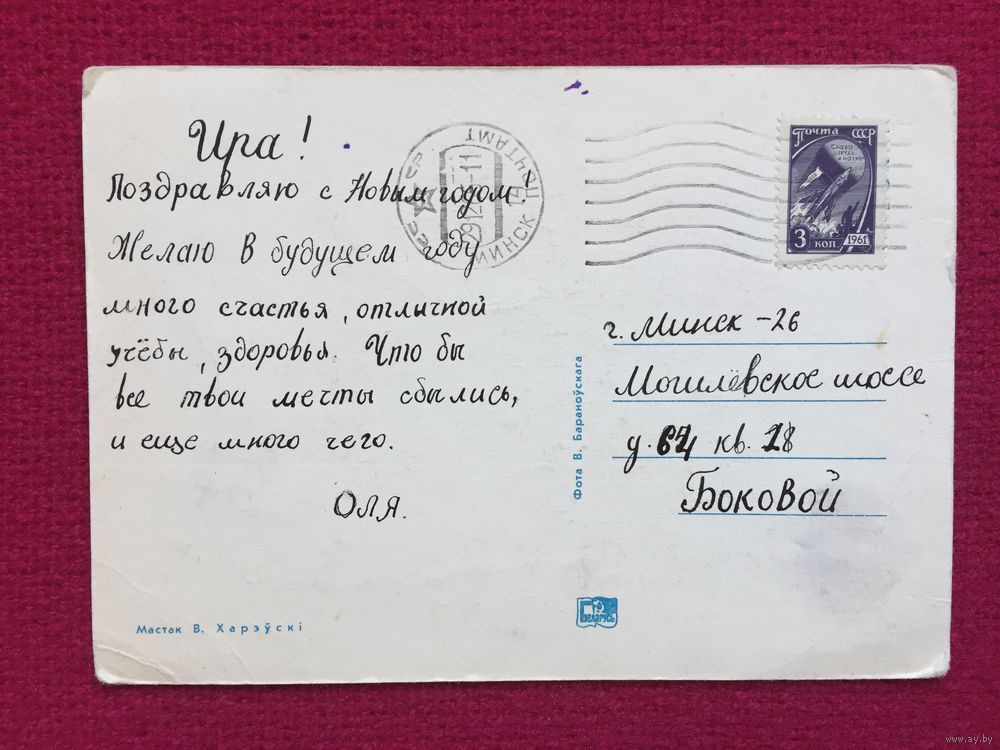 Ира!
Поздравляю с Новым годом!
Желаю в будущем году
много счастья, отличной
учёбы, здоровья. Что бы
все твои мечты сбылись,
и еще много чего.
Оля.
Мастак В. Харэўскі
МИНСК ПОЧТАМТ
Почта СССР
Слава
труду
и науке
3 КОП
1961
г. Минск - 26
Могилёвское шоссе
д. 64 кв. 28
Боковой
Фота В. Бараноўскага
БЕЛАРУСЬ
www.ay.by